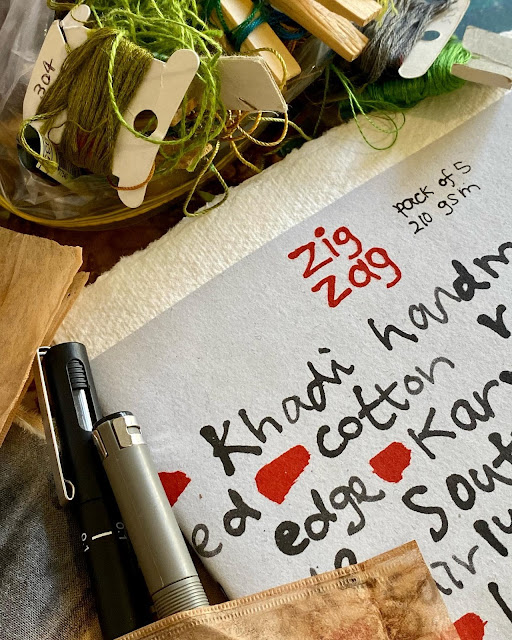 304
pack of 5
210 gsm
zig
zag
Khadi handm
cotton r
ed edge Kar
South
0.1
0.7